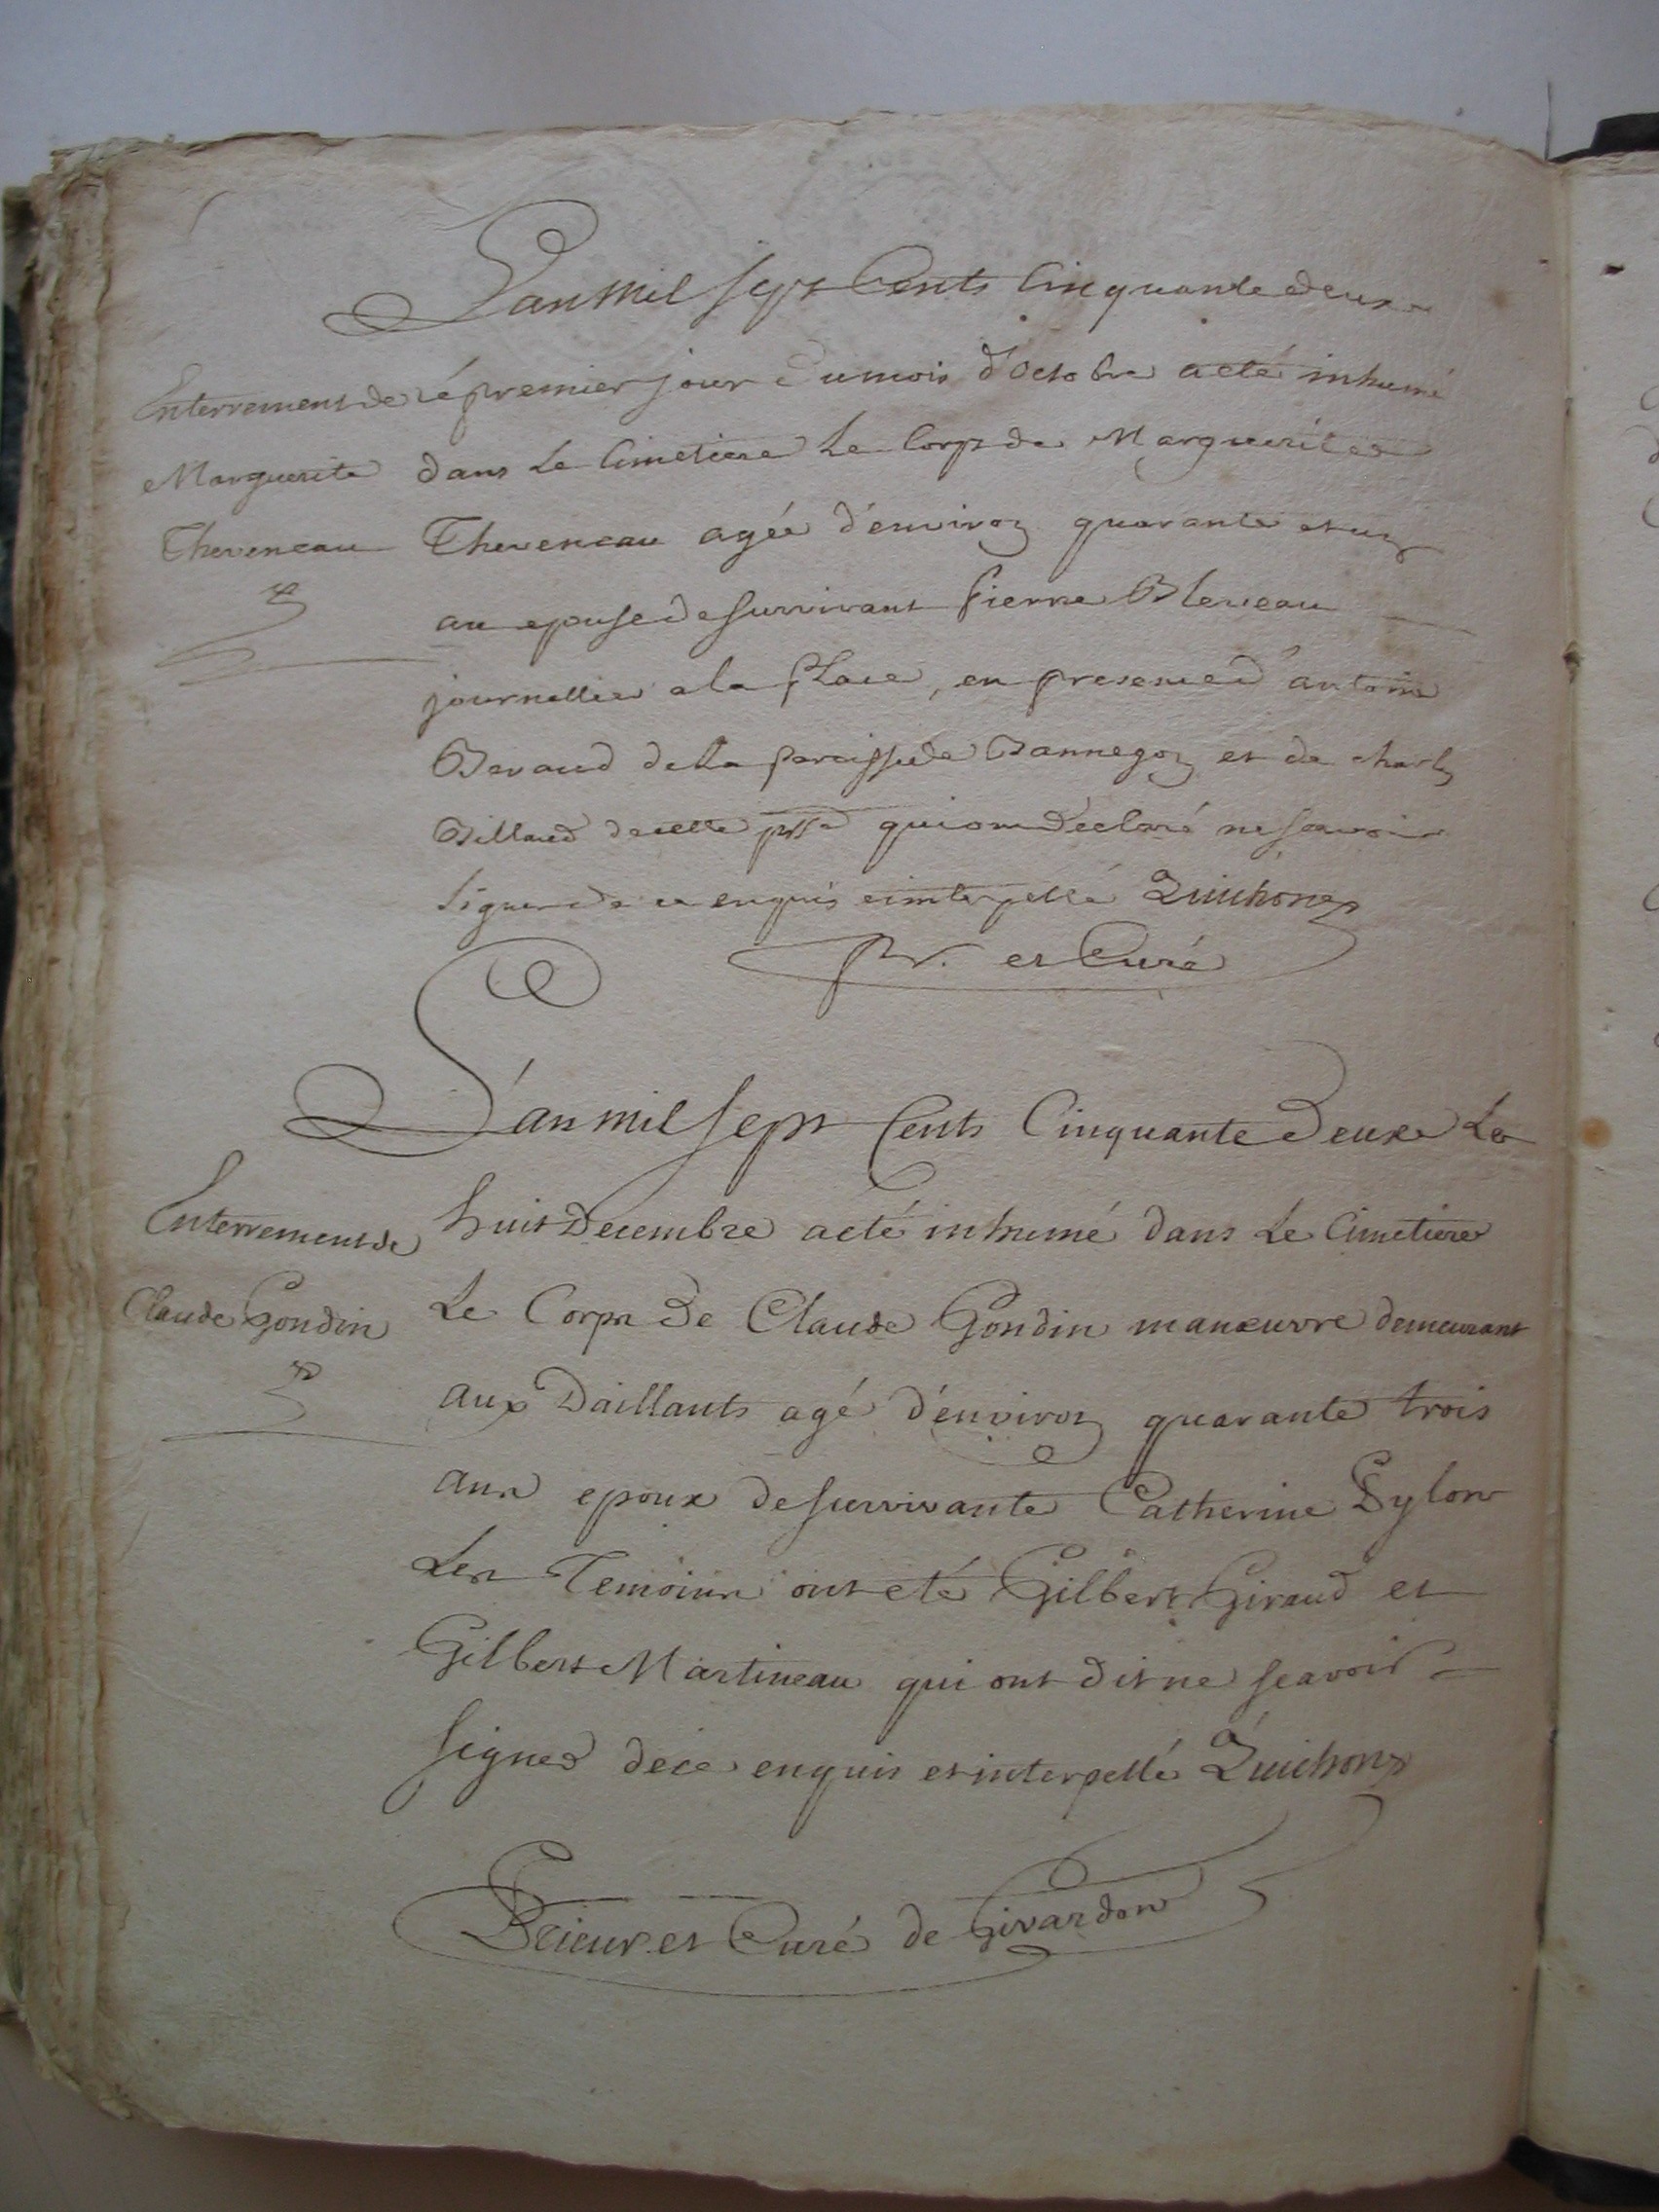 L'an mil sept Cents Cinquante deux
Enterrement de
Marguerite
Theveneau
le premier jour du mois d'Octobre a eté inhumé
dans Le Cimetiere Le Corps de Marguerite
Theveneau agée d'environ quarante et un
an epouse de survivant Pierre Bleneau
journellier a la place, en presence d'antoine
Beraud de La paroisse de Bannegon et de charles
Billaud de cette psse qui ont declaré ne scavoir
signer de ce enquis et interpellé Quichon
Pr. et Curé
L'an mil sept Cents Cinquante Deux Le
Enterrement de
Claude Gondin
huit Decembre a eté inhumé dans Le Cimetiere
Le Corps De Claude Gondin manœuvre demeurant
aux Daillants agé d'environ quarante trois
ans epoux de survivante Catherine Pylon
Les Temoins ont eté Gilbert Giraud et
Gilbert Martineau qui ont dit ne scavoir
signer de ce enquis et interpellé Quichon
Prieur et Curé de Givardon